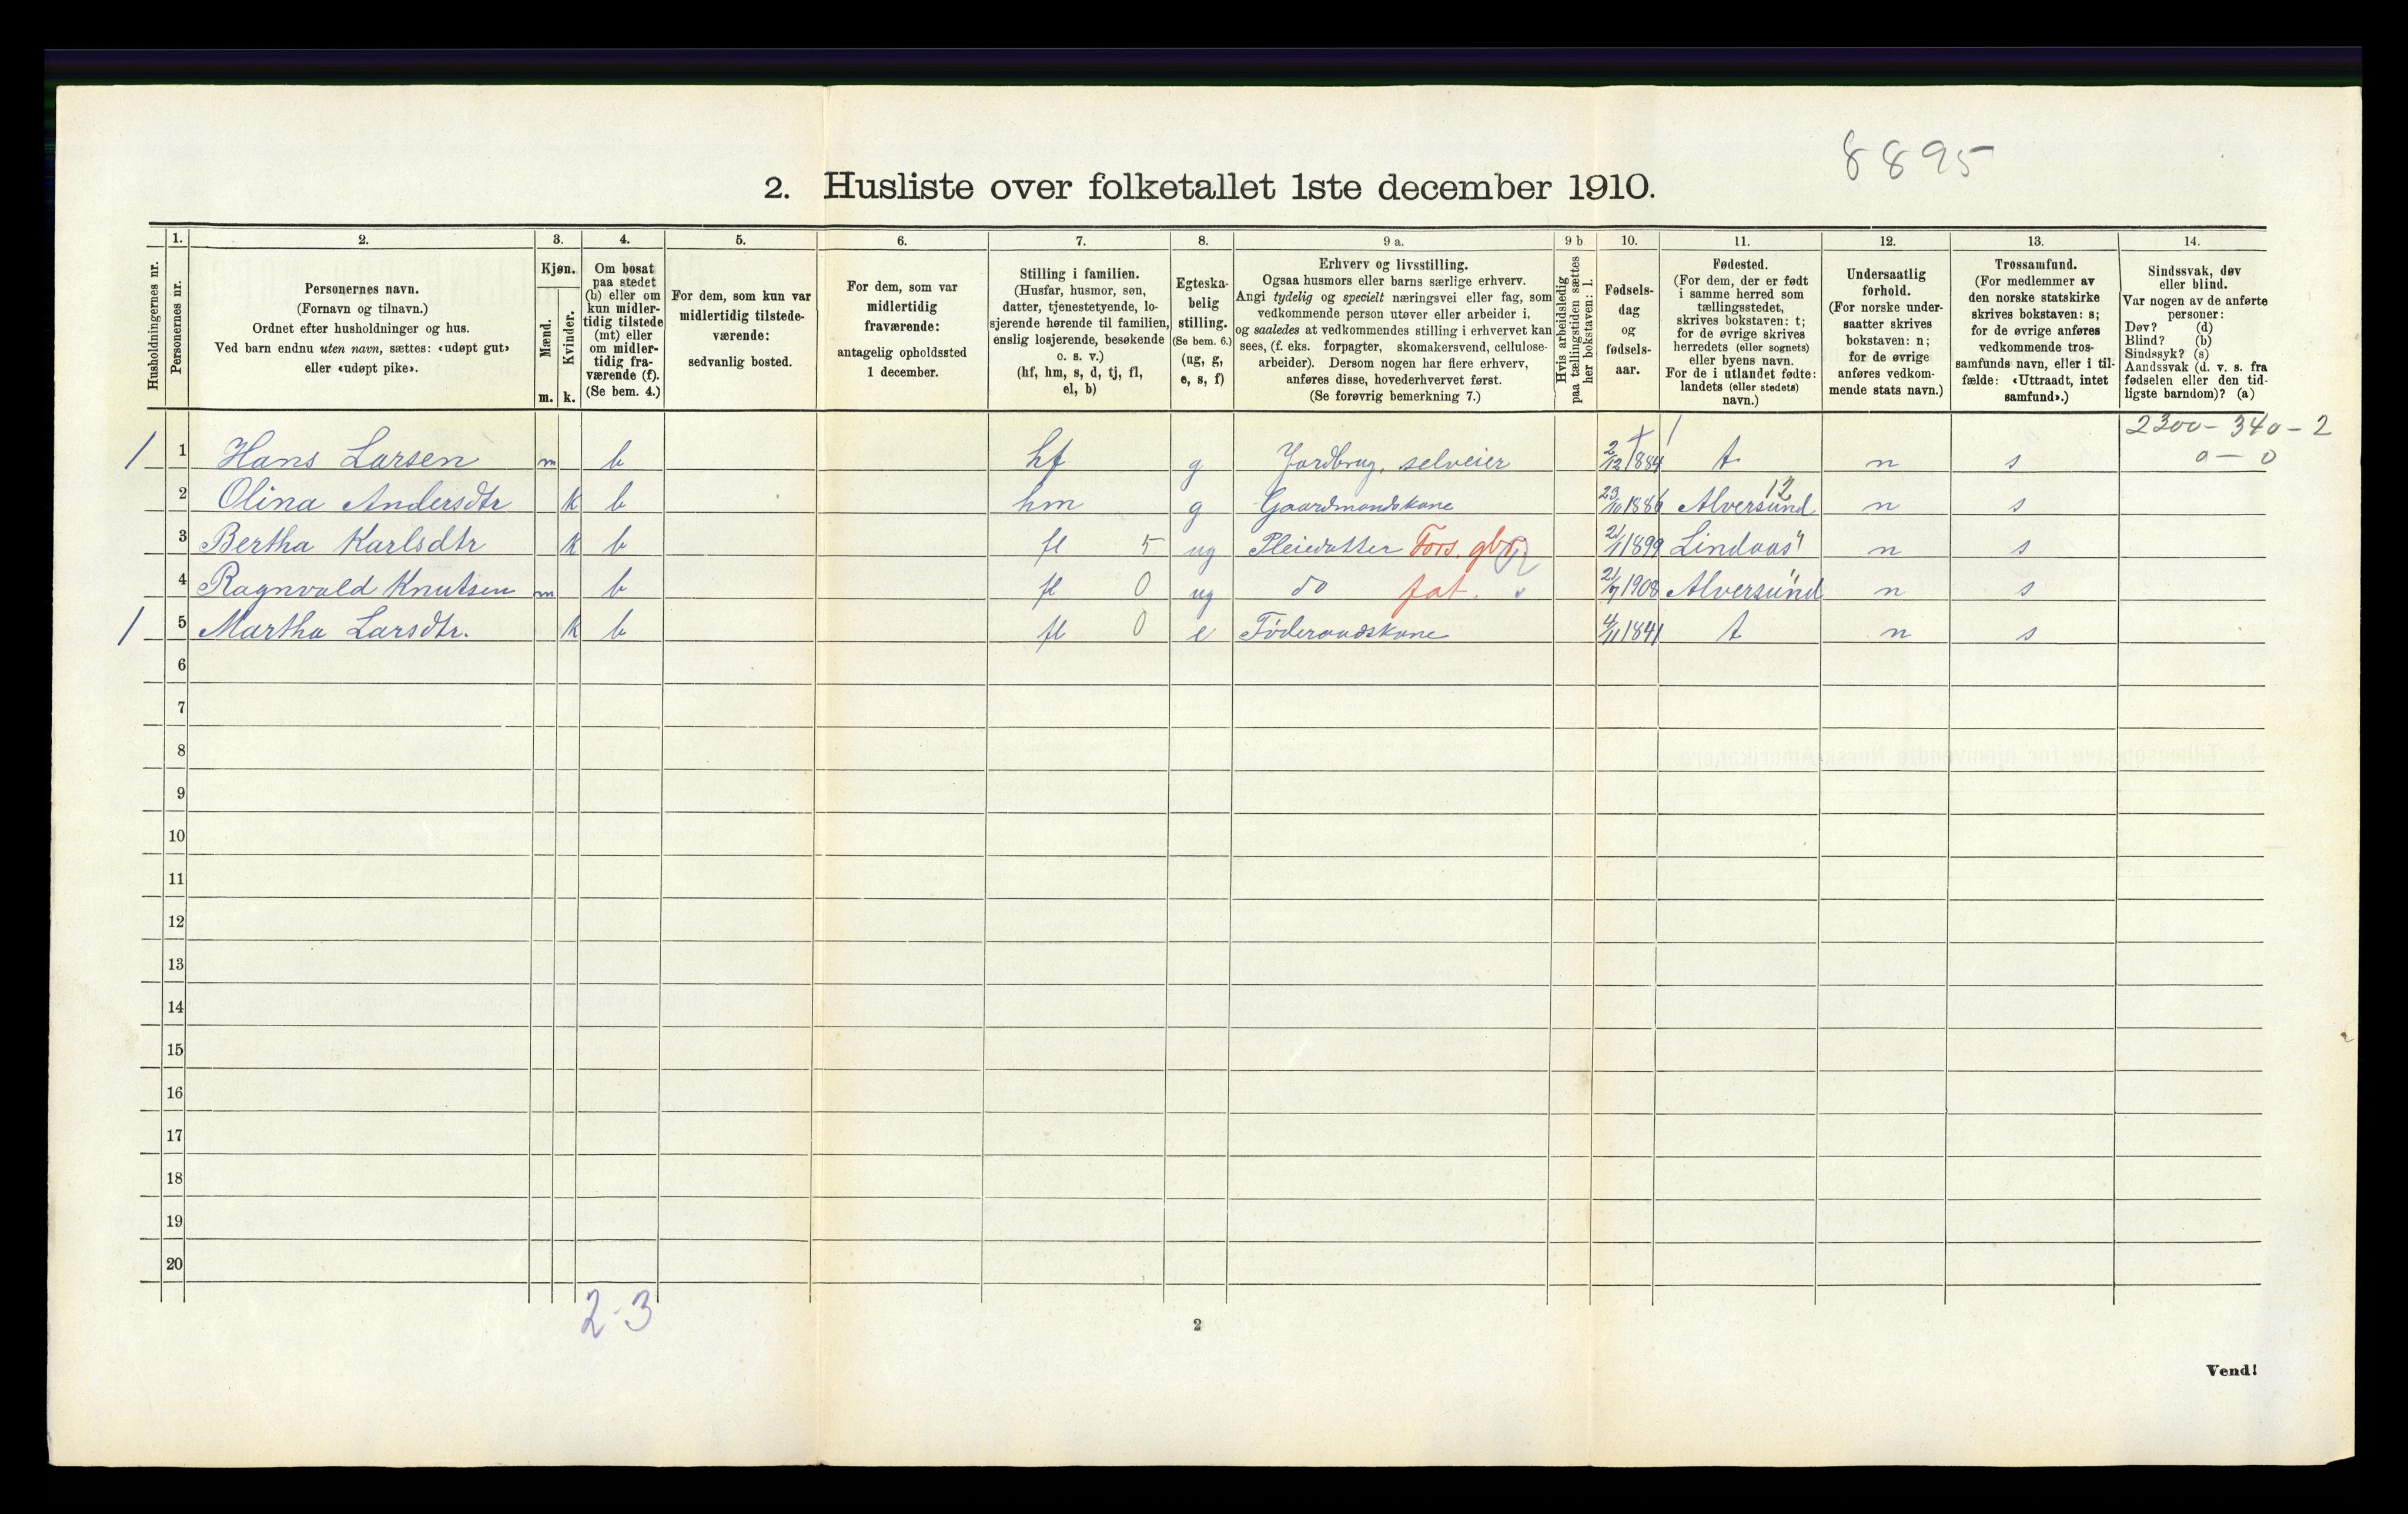 8895
2. Husliste over folketallet 1ste december 1910.
Husholdningernes nr.
1.
Personernes nr.
2.
Personernes navn.
(Fornavn og tilnavn.)
Ordnet efter husholdninger og hus.
Ved barn endnu uten navn, sættes: «udøpt gut»
eller «udøpt pike».
3.
Kjøn.
Mænd.
Kvinder.
m. k.
4.
Om bosat
paa stedet
(b) eller om
kun midler-
tidig tilstede
(mt) eller
om midler-
tidig fra-
værende (f).
(Se bem. 4.)
5.
For dem, som kun var
midlertidig tilstede-
værende:
sedvanlig bosted.
6.
For dem, som var
midlertidig
fraværende:
antagelig opholdssted
1 december.
7.
Stilling i familien.
(Husfar, husmor, søn,
datter, tjenestetyende, lo-
sjerende hørende til familien,
enslig losjerende, besøkende
o. s. v.)
(hf, hm, s, d, tj, fl,
el, b)
8.
Egteska-
belig
stilling.
(Se bem. 6.)
(ug, g,
e, s, f)
9 a.
Erhverv og livsstilling.
Ogsaa husmors eller barns særlige erhverv.
Angi tydelig og specielt næringsvei eller fag, som
vedkommende person utøver eller arbeider i,
og saaledes at vedkommendes stilling i erhvervet kan
sees, (f. eks. forpagter, skomakersvend, cellulose-
arbeider). Dersom nogen har flere erhverv,
anføres disse, hovederhvervet først.
(Se forøvrig bemerkning 7.)
9 b
Hvis arbeidsledig
paa tællingstiden sættes
her bokstaven: l.
10.
Fødsels-
dag
og
fødsels-
aar.
11.
Fødested.
(For dem, der er født
i samme herred som
tællingsstedet,
skrives bokstaven: t;
for de øvrige skrives
herredets (eller sognets)
eller byens navn.
For de i utlandet fødte:
landets (eller stedets)
navn.)
12.
Undersaatlig
forhold.
(For norske under-
saatter skrives
bokstaven: n;
for de øvrige
anføres vedkom-
mende stats navn.)
13.
Trossamfund.
(For medlemmer av
den norske statskirke
skrives bokstaven: s;
for de øvrige anføres
vedkommende tros-
samfunds navn, eller i til-
fælde: «Uttraadt, intet
samfund».)
14.
Sindssvak, døv
eller blind.
Var nogen av de anførte
personer:
Døv? (d)
Blind? (b)
Sindssyk? (s)
Aandssvak (d. v. s. fra
fødselen eller den tid-
ligste barndom)? (a)
2300 - 340 - 2
0 - 0
1 1 Hans Larsen m b hf g Jordbrug, selveier 2/12 1884 t n s
2 Olina Andersdtr k b hm g Gaardmandskone 23/10 1886 Alversund 12 n s
3 Bertha Karlsdtr k b fl 5 ug Pleiedatter Fors. gbr 2/11899 Lindaas n s
4 Ragnvald Knutsen m b fl 0 ug do fat. 21/7 1908 Alversund n s
1 5 Martha Larsdtr. k b fl 0 e Føderaadskone 4/11 1841 t n s
6
7
8
9
10
11
12
13
14
15
16
17
18
19
20
2-3
2
Vend!